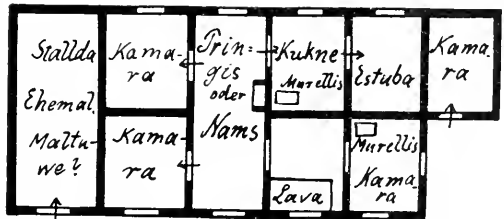 Stallda
Ehemal.
Maltu-
we?
Kama-
ra
Kama-
ra
Prin-
gis
oder
Nams
Kukne
Murellis
Lava
Estuba
Murellis
Kama-
ra
Kama-
ra